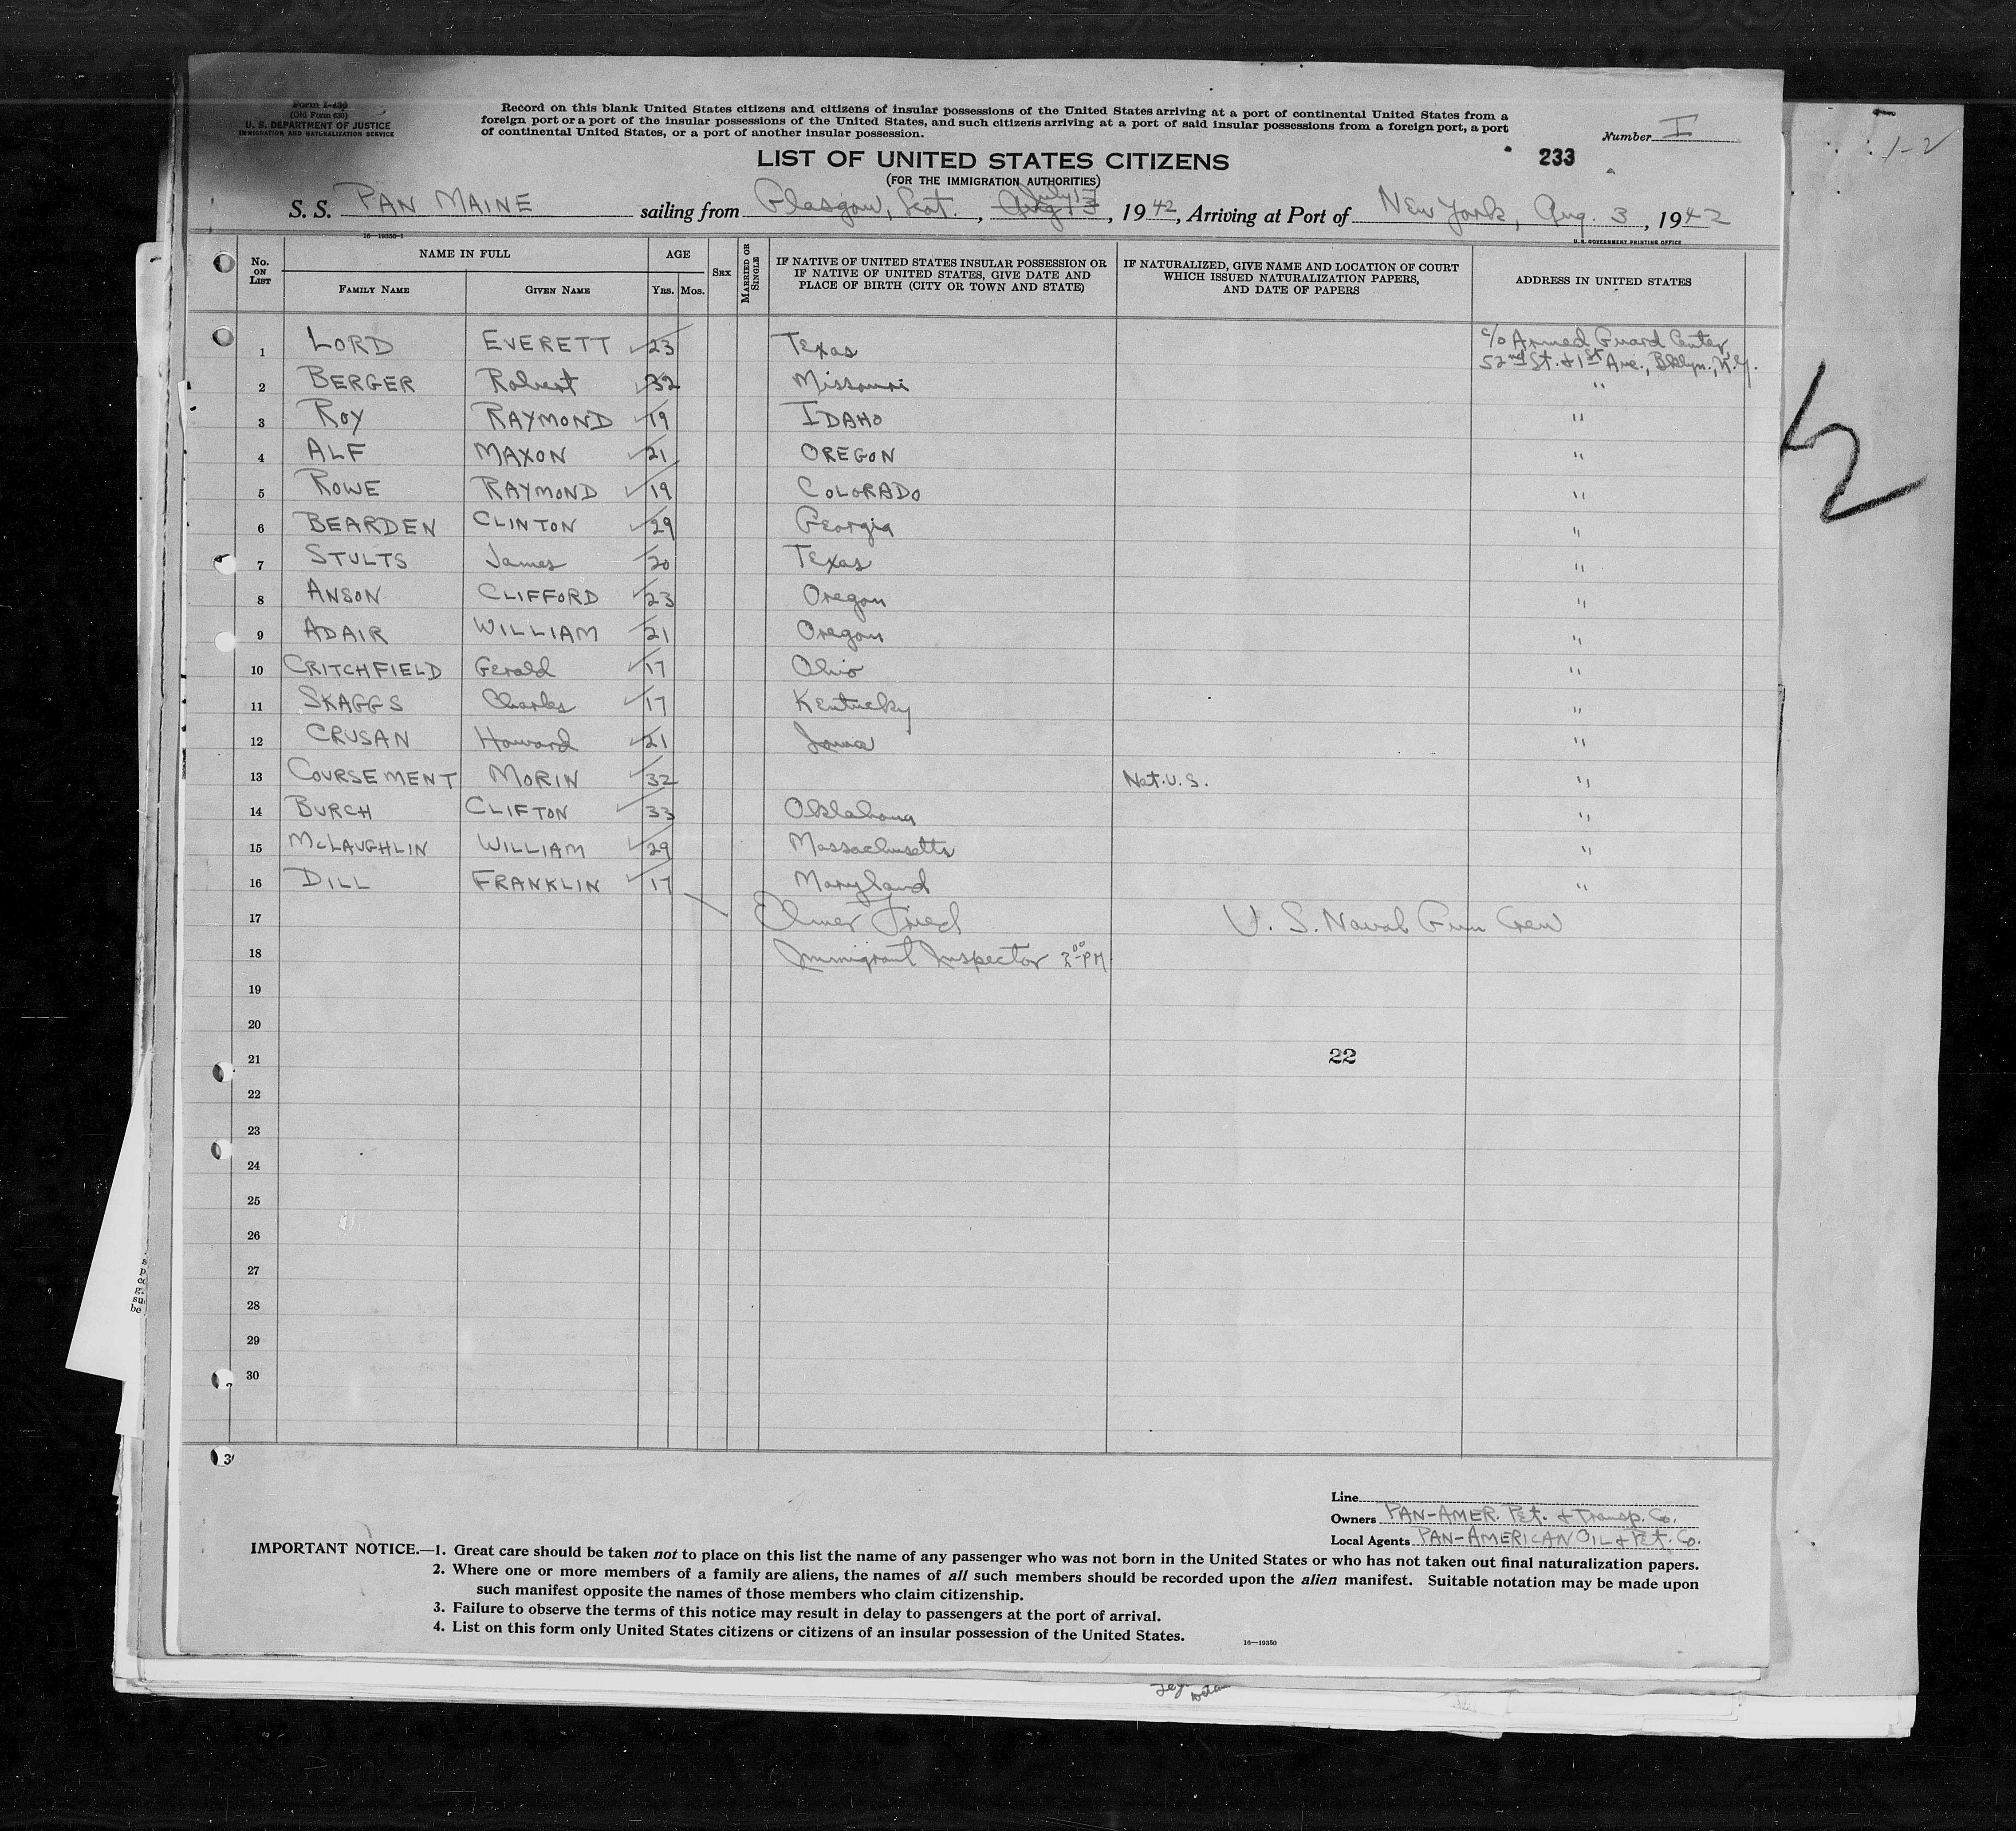 Form I-430
(Old Form 630)
U. S. DEPARTMENT OF JUSTICE
IMMIGRATION AND NATURALIZATION SERVICE
Record on this blank United States citizens and citizens of insular possessions of the United States arriving at a port of continental United States from a
foreign port or a port of the insular possessions of the United States, and such citizens arriving at a port of said insular possessions from a foreign port, a port
of continental United States, or a port of another insular possession.
Number I
1-2
LIST OF UNITED STATES CITIZENS
233
(FOR THE IMMIGRATION AUTHORITIES)
July 17
S. S. PAN MAINE sailing from Glasgow, Scot., Aug 13, 1942, Arriving at Port of New York, Aug. 3, 1942
16—19350-1
U. S. GOVERNMENT PRINTING OFFICE
No. ON LIST NAME IN FULL FAMILY NAME GIVEN NAME AGE YRS. MOS. SEX MARRIED OR SINGLE IF NATIVE OF UNITED STATES INSULAR POSSESSION OR IF NATIVE OF UNITED STATES, GIVE DATE AND PLACE OF BIRTH (CITY OR TOWN AND STATE) IF NATURALIZED, GIVE NAME AND LOCATION OF COURT WHICH ISSUED NATURALIZATION PAPERS, AND DATE OF PAPERS ADDRESS IN UNITED STATES
1 LORD EVERETT 23 Texas c/o Armed Guard Center,
52nd St. & 1st Ave., Bklyn., N.Y.
2 BERGER Robert 32 Missouri "
3 ROY RAYMOND 19 IDAHO "
4 ALF MAXON 21 OREGON "
5 ROWE RAYMOND 19 COLORADO "
6 BEARDEN CLINTON 29 Georgia "
7 STULTS James 20 Texas "
8 ANSON CLIFFORD 23 Oregon "
9 ADAIR WILLIAM 21 Oregon "
10 CRITCHFIELD Gerald 17 Ohio "
11 SKAGGS Charles 17 Kentucky "
12 CRUSAN Howard 21 Iowa "
13 COURSEMENT MORIN 32 Nat. U. S. "
14 BURCH CLIFTON 33 Oklahoma "
15 McLAUGHLIN WILLIAM 29 Massachusetts "
16 DILL FRANKLIN 17 Maryland "
17 Elmer Fried U. S. Naval Gun Crew
18 Immigrant Inspector 2 00 PM
19
20
21 22
22
23
24
25
26
27
28
29
30
Line
Owners PAN-AMER. Pet. & Transp. Co.
Local Agents PAN-AMERICAN OIL & Pet. Co.
IMPORTANT NOTICE.—1. Great care should be taken not to place on this list the name of any passenger who was not born in the United States or who has not taken out final naturalization papers.
2. Where one or more members of a family are aliens, the names of all such members should be recorded upon the alien manifest. Suitable notation may be made upon
such manifest opposite the names of those members who claim citizenship.
3. Failure to observe the terms of this notice may result in delay to passengers at the port of arrival.
4. List on this form only United States citizens or citizens of an insular possession of the United States.
16—19350